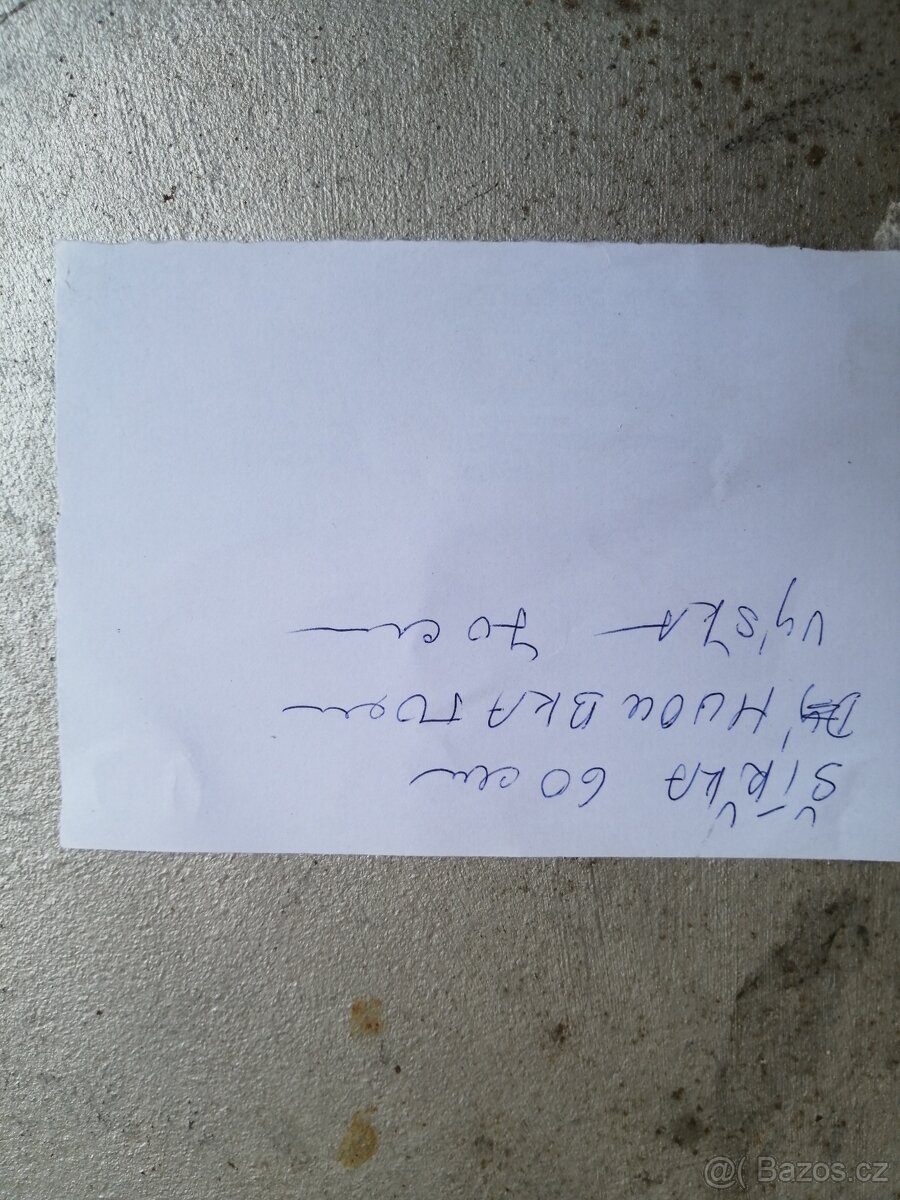 ŠÍŘKA 60 cm
HLOUBKA 50 cm
VÝŠKA 70 cm
@( Bazos.cz